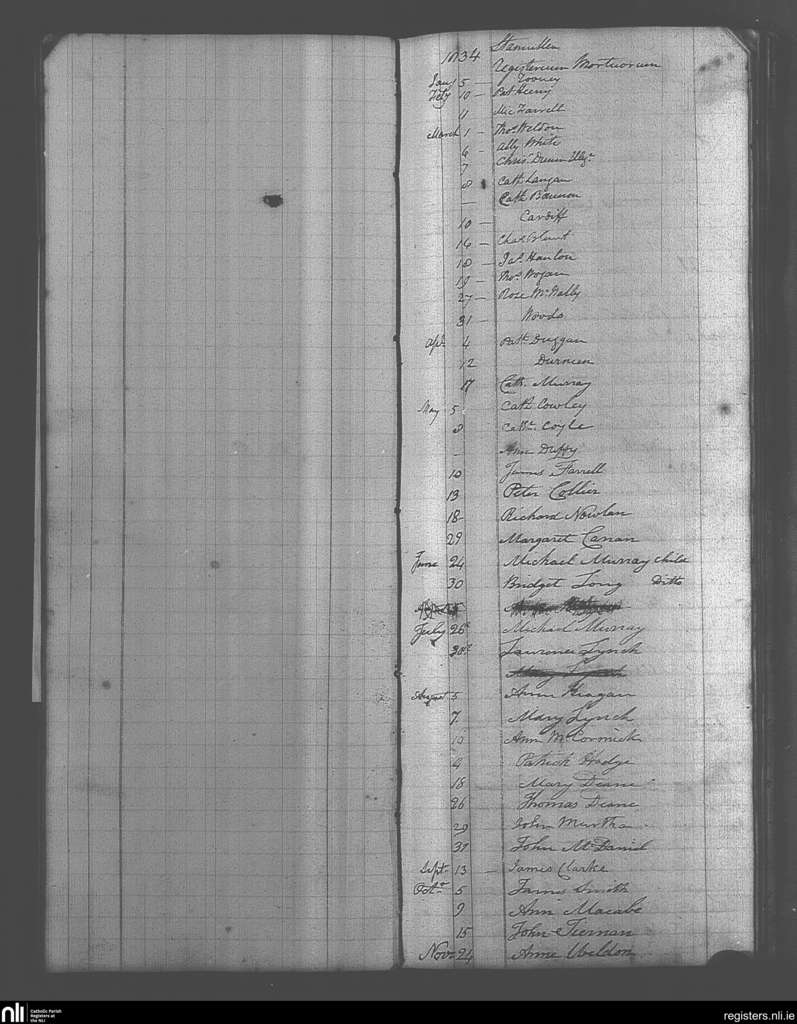 1834 Stamullen
Registerium Mortuorum
Jany 5 — Tooney
Feby 10 — Pat Heery
11 Mic Farrell
March 1 — Thos Weldon
6 — Ally White
7 Chris
8 Cath Langan
— Cath Bannon
10 — Cardiff
14 — Chas
18 — Jas Hanlon
19 — Thos Hogan
27 — Rose McNally
31 — Woods
Apl 4 Patk Duggan
12 Durnien
17 Cath. Murray
May 5 Cath Cowley
8 Cathe Coyle
— Ann Duffy
10 James Farrell
13 Peter Collier
18 Richard Nowlan
29 Margaret Canan
June 24 Michael Murray child
30 Bridget Long Ditto
July 26th Michael Murray
30th Lawrence Lynch
August 5 Ann Keagan
7 Mary Lynch
10 Ann McCormick
9 Patrick Hodge
18 Mary Deane
26 Thomas Deane
29 John Murtha
31 John McDaniel
Sept. 13 — James Clarke
Octr 5 James Smith
9 Ann Macabe
15 John Tiernan
Novr 24 Anne Weldon
nli Catholic Parish
Registers at
the NLI
registers.nli.ie